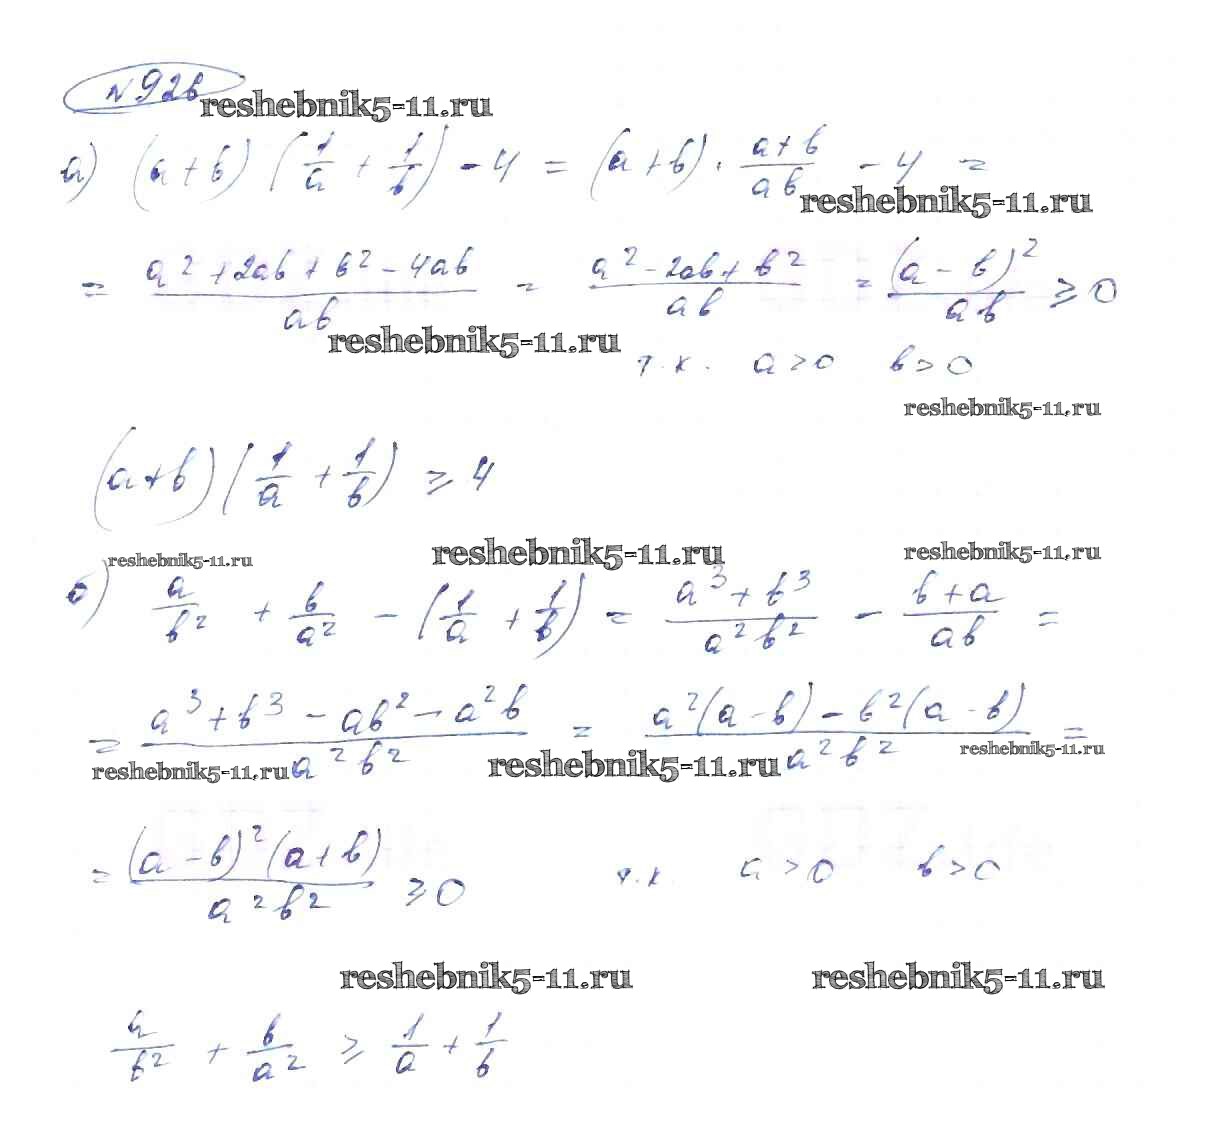 №926
reshebnik5-11.ru
а) (a+b) (1/a + 1/b) - 4 = (a+b) · (a+b)/(ab) - 4 =
reshebnik5-11.ru
= (a² + 2ab + b² - 4ab)/(ab) = (a² - 2ab + b²)/(ab) = (a - b)²/(ab) ≥ 0
reshebnik5-11.ru
т.к. a>0 b>0
reshebnik5-11.ru
(a+b) (1/a + 1/b) ≥ 4
reshebnik5-11.ru reshebnik5-11.ru reshebnik5-11.ru
б) a/b² + b/a² - (1/a + 1/b) = (a³ + b³)/(a²b²) - (b+a)/(ab) =
= (a³ + b³ - ab² - a²b)/(a²b²) = (a²(a-b) - b²(a-b))/(a²b²) =
reshebnik5-11.ru reshebnik5-11.ru reshebnik5-11.ru
= (a-b)²(a+b)/(a²b²) ≥ 0 т.к. a>0 b>0
reshebnik5-11.ru reshebnik5-11.ru
a/b² + b/a² ≥ 1/a + 1/b